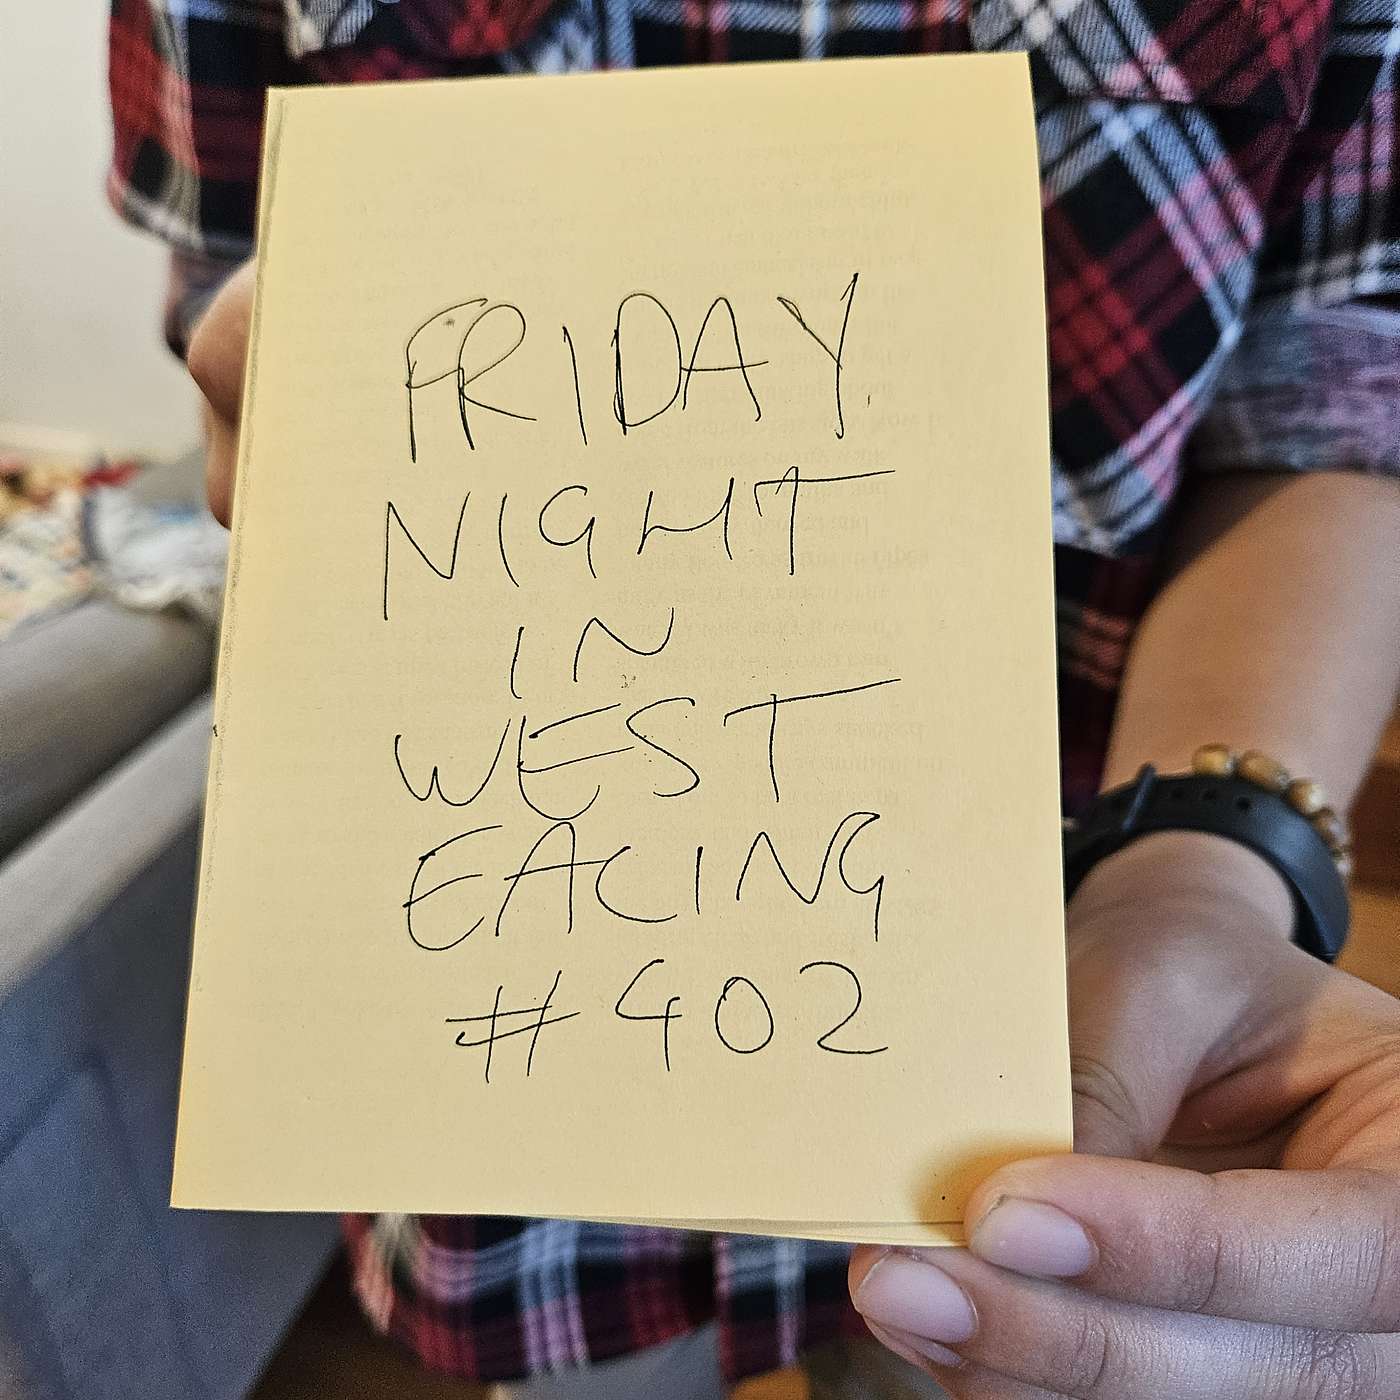 FRIDAY
NIGHT
IN
WEST
EALING
#402